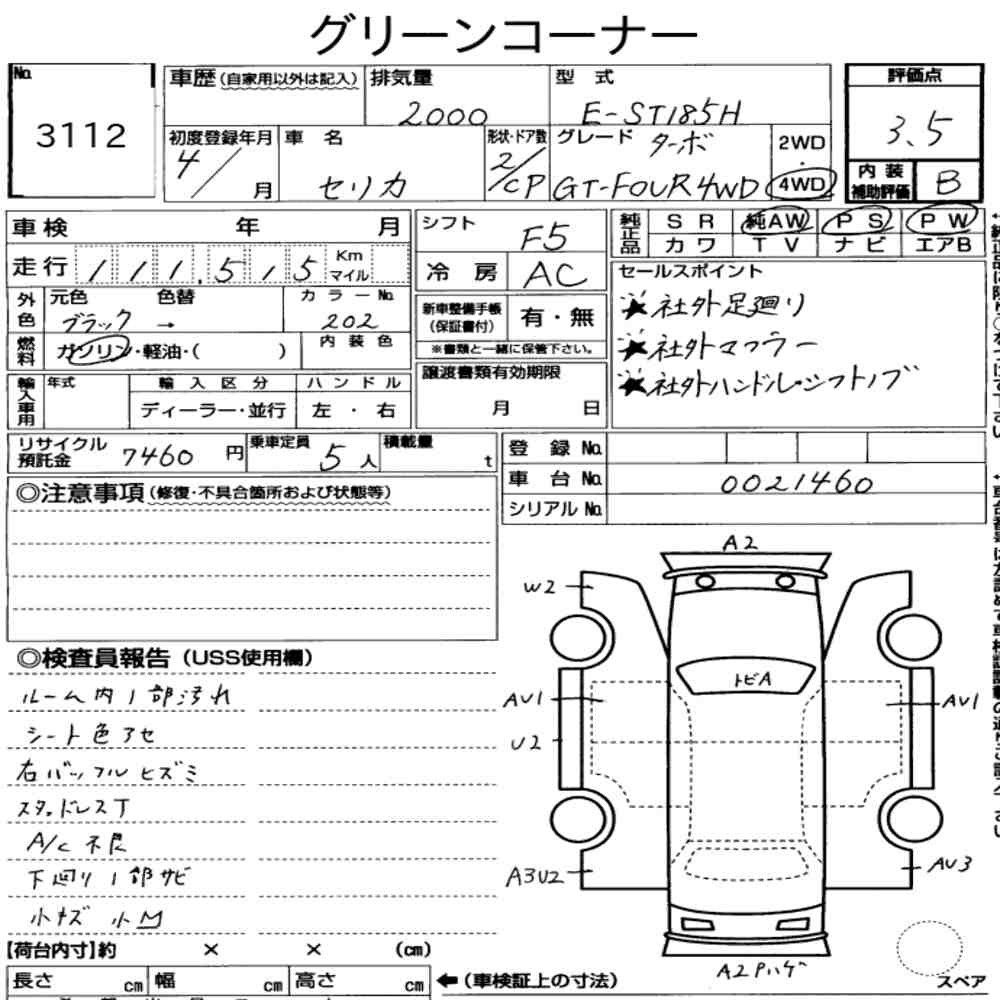 グリーンコーナー
No. 3112
車歴(自家用以外は記入) 排気量 2000 型式 E-ST185H 評価点 3.5
初度登録年月 4/ 月 車名 セリカ 形状・ドア数 2/CP グレード ターボ GT-FOUR 4WD 2WD・4WD
内装補助評価 B
車検 年 月
走行 111,515 Km マイル
シフト F5
冷房 AC
純正品 SR 純AW PS PW
カワ TV ナビ エアB
外色 元色 色替 カラーNo.
ブラック → 202
燃料 ガソリン・軽油・( ) 内装色
新車整備手帳(保証書付) 有・無
※書類と一緒に保管下さい。
セールスポイント
★社外足廻り
★社外マフラー
★社外ハンドル・シフトノブ
輸入車用 年式 輸入区分 ハンドル
ディーラー・並行 左・右
譲渡書類有効期限
月 日
リサイクル預託金 7460 円 乗車定員 5人 積載量 t
登録No.
車台No. 0021460
シリアルNo.
◎注意事項(修復・不具合箇所および状態等)
◎検査員報告(USS使用欄)
ルーム内1部汚れ
シート色アセ
右バッフルヒズミ
スタッドレスT
A/C不良
下廻り1部サビ
小キズ 小M
A2
W2
トビA
AU1
AU1
U2
A3U2
AU3
A2Pハゲ
スペア
【荷台内寸】約 × × (cm)
長さ cm 幅 cm 高さ cm ←(車検証上の寸法)